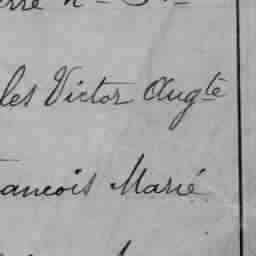 les Victor Aug^te
ancois Marié